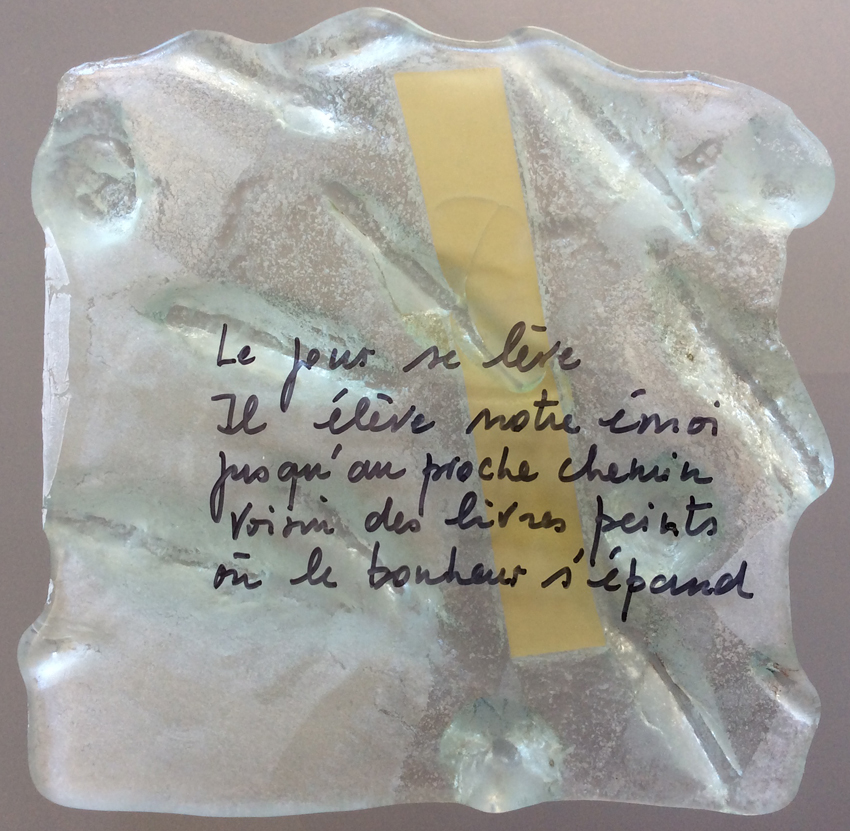 Le jour se lève
Il élève notre émoi
jusqu'au proche chemin
voisin des livres peints
où le bonheur s'épand